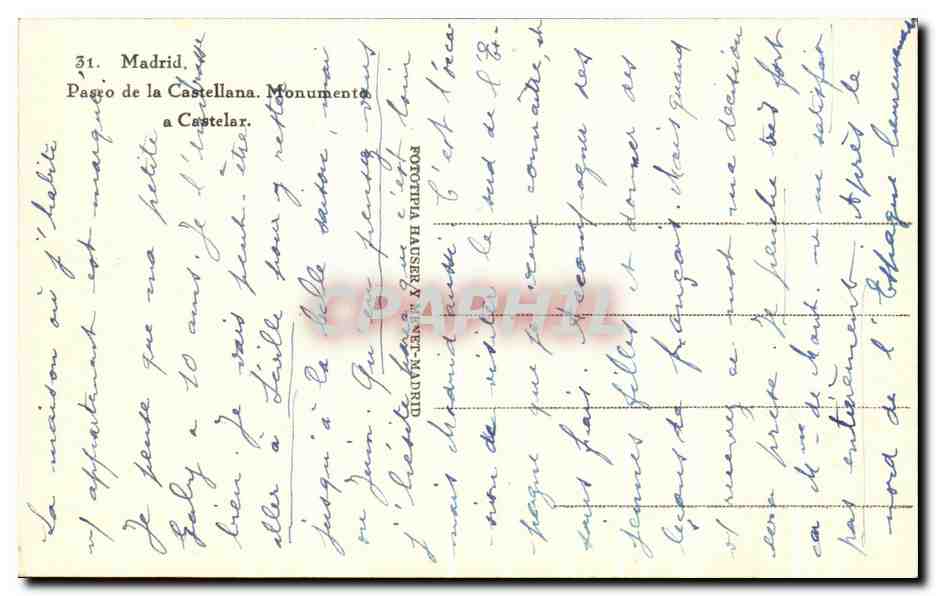 31. Madrid.
Paseo de la Castellana. Monumento
a Castelar.
FOTOTIPIA HAUSER Y MENET-MADRID
CPAPHIL
La maison où j'habite
n/ appartement est marqué
Je pense que ma petite
Gaby a 10 ans. Je l'embrasse
bien. Je vais peut-être
aller à Séville pour y rester
jusqu'à la belle saison, mai
ou Juin. Qu'en pensez vous
j'hésite parce que c'est loin
mais Madrid aussi. C'est l'occa
sion de visiter le sud de l'Es-
pagne que je veux connaître, et
sans frais. Accompagner des
jeunes filles et donner des
leçons de français. Mais quand
v/ recevrez ce mot ma décision
sera prise. Je penche très fort
car Mme de Mont. ne me satisfait
pas entièrement. Après le
nord de l'Espagne heureusement